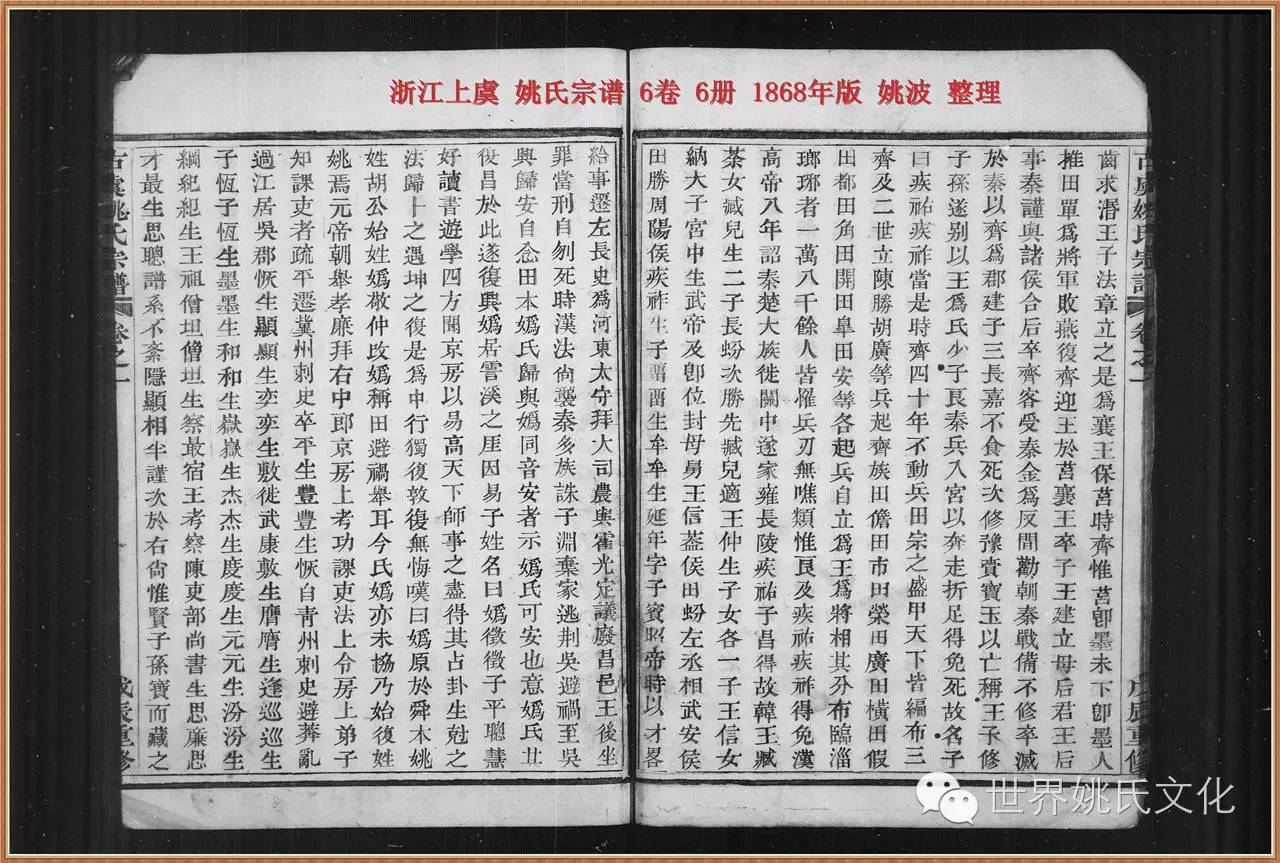 浙江上虞 姚氏宗谱 6卷 6册 1868年版 姚波 整理
齒求湣王子法章立之是爲襄王保莒時齊惟莒卽墨未下卽墨人
推田單爲將軍敗燕復齊迎王於莒襄王卒子王建立母后君王后
事秦謹與諸侯合后卒齊客受秦金爲反間勸朝秦戰備不修卒滅
於秦以齊爲郡建子三長嘉不食死次修豫賫寶玉以亡稱王子修
子孫遂别以王爲氏少子艮秦兵入宮以奔走折足得免死故名子
曰疾祐疾祚當是時齊四十年不動兵田宗之盛甲天下皆編布三
齊及二世立陳勝胡廣等兵起齊族田儋田市田榮田廣田橫田假
田都田角田開田臯田安等各起兵自立爲王爲將相其分布臨淄
瑯琊者一萬八千餘人皆罹兵刃無噍類惟艮及疾祐疾祚得免漢
高帝八年詔秦楚大族徙關中遂家雍長陵疾祐子昌得故韓王臧
荼女臧兒生二子長蚡次勝先臧兒適王仲生子女各一子王信女
納大子宮中生武帝及卽位封母舅王信蓋侯田蚡左丞相武安侯
田勝周陽侯疾祚生子
生牟牟生延年字子賓昭帝時以才畧
給事遷左長史爲河東太守拜大司農與霍光定議廢昌邑王後坐
罪當刑自刎死時漢法尙襲秦多族誅子淵棄家逃荆吳避禍至吳
興歸安自念田本嬀氏歸與嬀同音安者示嬀氏可安也意嬀氏其
復昌於此遂復興嬀居霅溪之厓因易子姓名曰嬀徵徵子平聰慧
好讀書遊學四方聞京房以易高天下師事之盡得其占卦生尅之
法歸卜之遇坤之復是爲中行獨復敦復無悔嘆曰嬀原於舜本姚
姓胡公始姓嬀敬仲改嬀稱田避禍舉耳今氏嬀亦未恊乃始復姓
姚焉元帝朝舉孝廉拜右中郎京房上考功課吏法上令房上弟子
知課吏者疏平遷冀州刺史卒平生豐豐生恢自青州刺史避莽亂
過江居吳郡恢生顯顯生奕奕生敷徙武康敷生膺膺生逢逢生
子恆子恆生墨墨生和和生嶽嶽生杰杰生度度生元元生汾汾生
綱紀紀生王祖僧坦僧坦生察最宿王考察陳吏部尚書生思廉思
才最生思聰譜系不紊隱顯相半謹次於右尙惟賢子孫寶而藏之
古虞姚氏宗譜 卷之一
戊辰重修
世界姚氏文化